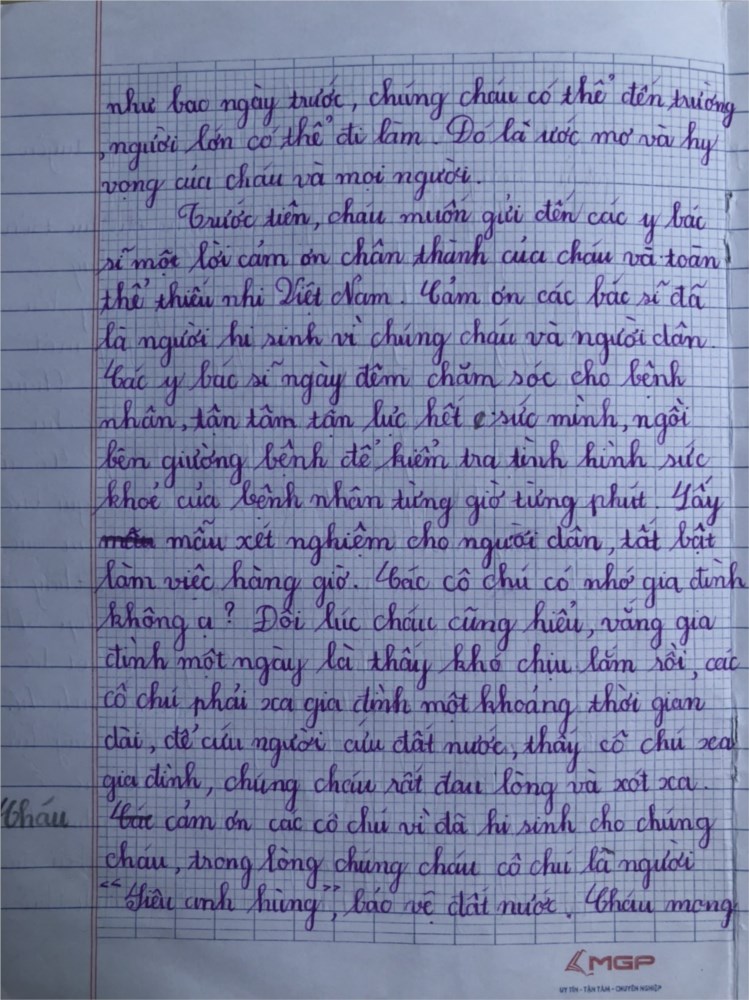 như bao ngày trước, chúng cháu có thể đến trường
, người lớn có thể đi làm. Đó là ước mơ và hy
vọng của cháu và mọi người.
Trước tiên, cháu muốn gửi đến các y bác
sĩ một lời cảm ơn chân thành của cháu và toàn
thể thiếu nhi Việt Nam. Cảm ơn các bác sĩ đã
là người hi sinh vì chúng cháu và người dân.
Các y bác sĩ ngày đêm chăm sóc cho bệnh
nhân, tận tâm tận lực hết sức mình, ngồi
bên giường bệnh để kiểm tra tình hình sức
khoẻ của bệnh nhân từng giờ từng phút. Lấy
mẫu xét nghiệm cho người dân, tất bật
làm việc hàng giờ. Các cô chú có nhớ gia đình
không ạ? Đôi lúc cháu cũng hiểu, vắng gia
đình một ngày là thấy khó chịu lắm rồi, các
cô chú phải xa gia đình một khoảng thời gian
dài, để cứu người cứu đất nước, thấy cô chú xa
gia đình, chúng cháu rất đau lòng và xót xa.
Cháu Các cảm ơn các cô chú vì đã hi sinh cho chúng
cháu, trong lòng chúng cháu cô chú là người
"Siêu anh hùng", bảo vệ đất nước. Cháu mong
MGP
UY TÍN - TẬN TÂM - CHUYÊN NGHIỆP